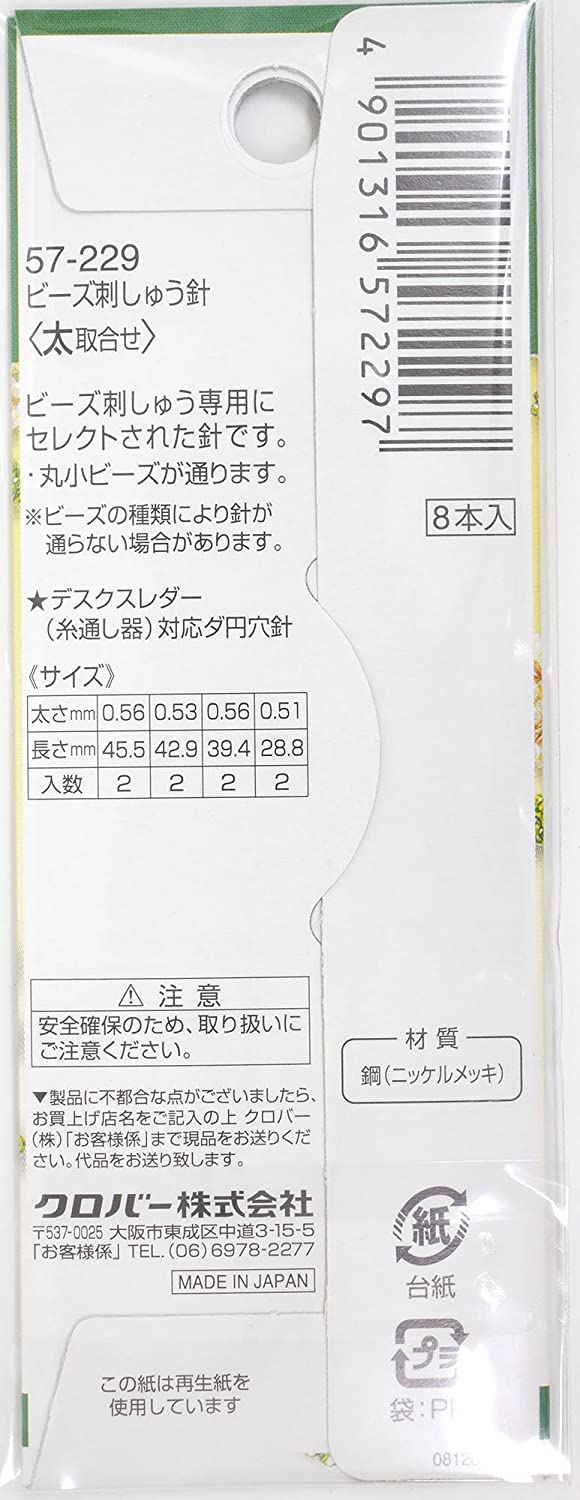 4 901316 572297
57-229
ビーズ刺しゅう針
〈太取合せ〉
ビーズ刺しゅう専用に
セレクトされた針です。
・丸小ビーズが通ります。
※ビーズの種類により針が
通らない場合があります。
8本入
★デスクスレダー
(糸通し器)対応ダ円穴針
《サイズ》
太さmm 0.56 0.53 0.56 0.51
長さmm 45.5 42.9 39.4 28.8
入数 2 2 2 2
⚠ 注意
安全確保のため、取り扱いに
ご注意ください。
材質
鋼(ニッケルメッキ)
▼製品に不都合な点がございましたら、
お買上げ店名をご記入の上 クロバー
(株)「お客様係」まで現品をお送りくだ
さい。代品をお送り致します。
クロバー株式会社
〒537-0025 大阪市東成区中道3-15-5
「お客様係」TEL.(06)6978-2277
MADE IN JAPAN
紙
台紙
プラ
袋:P
この紙は再生紙を
使用しています
0812